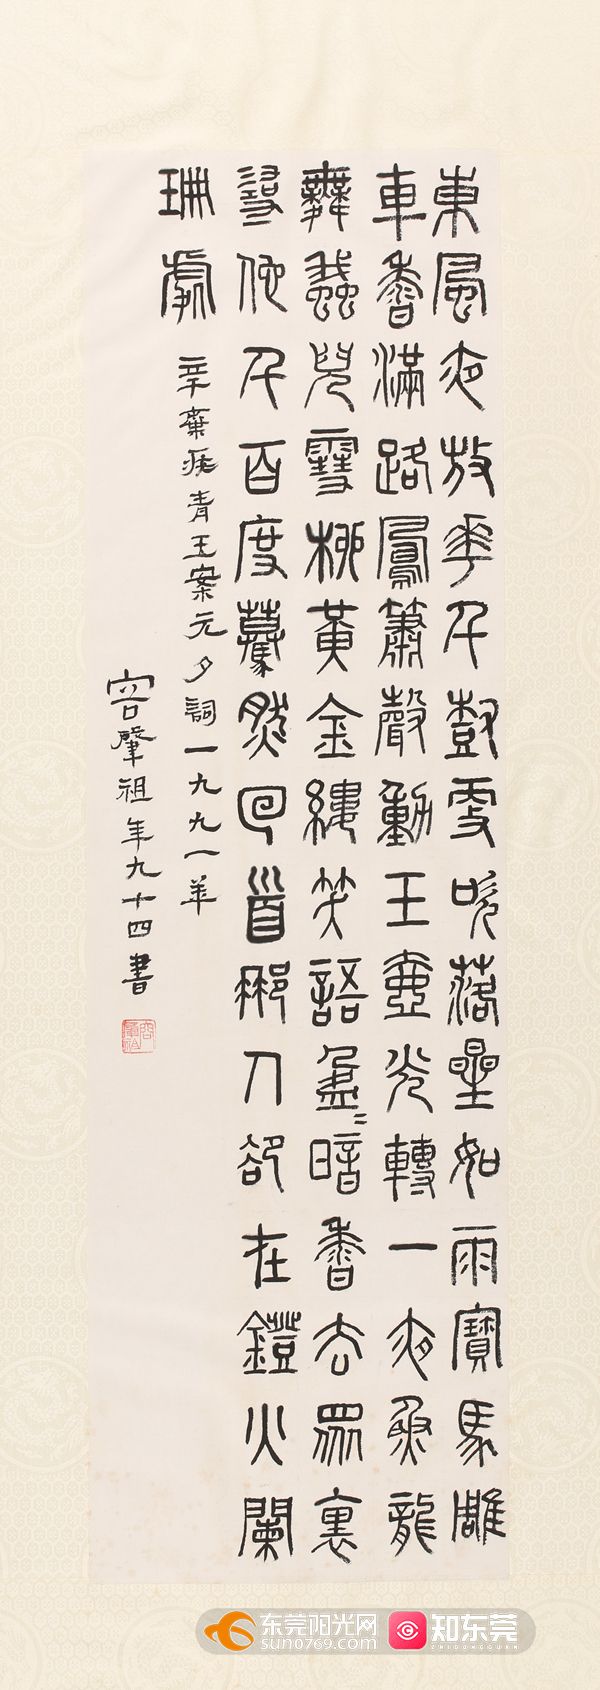 東風夜放華千尌更吹落星如雨寶馬雕
車香滿路鳳簫聲動玉壺光轉一夜魚龍
舞蛾兒雪柳黃金縷笑語盈〻暗香去眾裏
尋他千百度驀然回首那人卻在鐙火闌
珊處
辛棄疾青玉案元夕詞一九九一年
容肇祖年九十四書
容肇祖
东莞阳光网
sun0769.com
知东莞
ZHIDONGGUAN